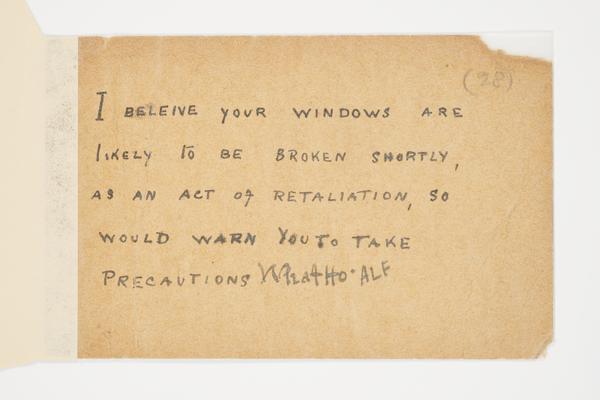 (28)
I BELEIVE YOUR WINDOWS ARE
lIKELY to BE BROKEN SHORTLY,
AS AN ACT OF RETALIATION, SO
WOULD WARN YOU To TAKE
PRECAUTIONS WhatHo·ALF